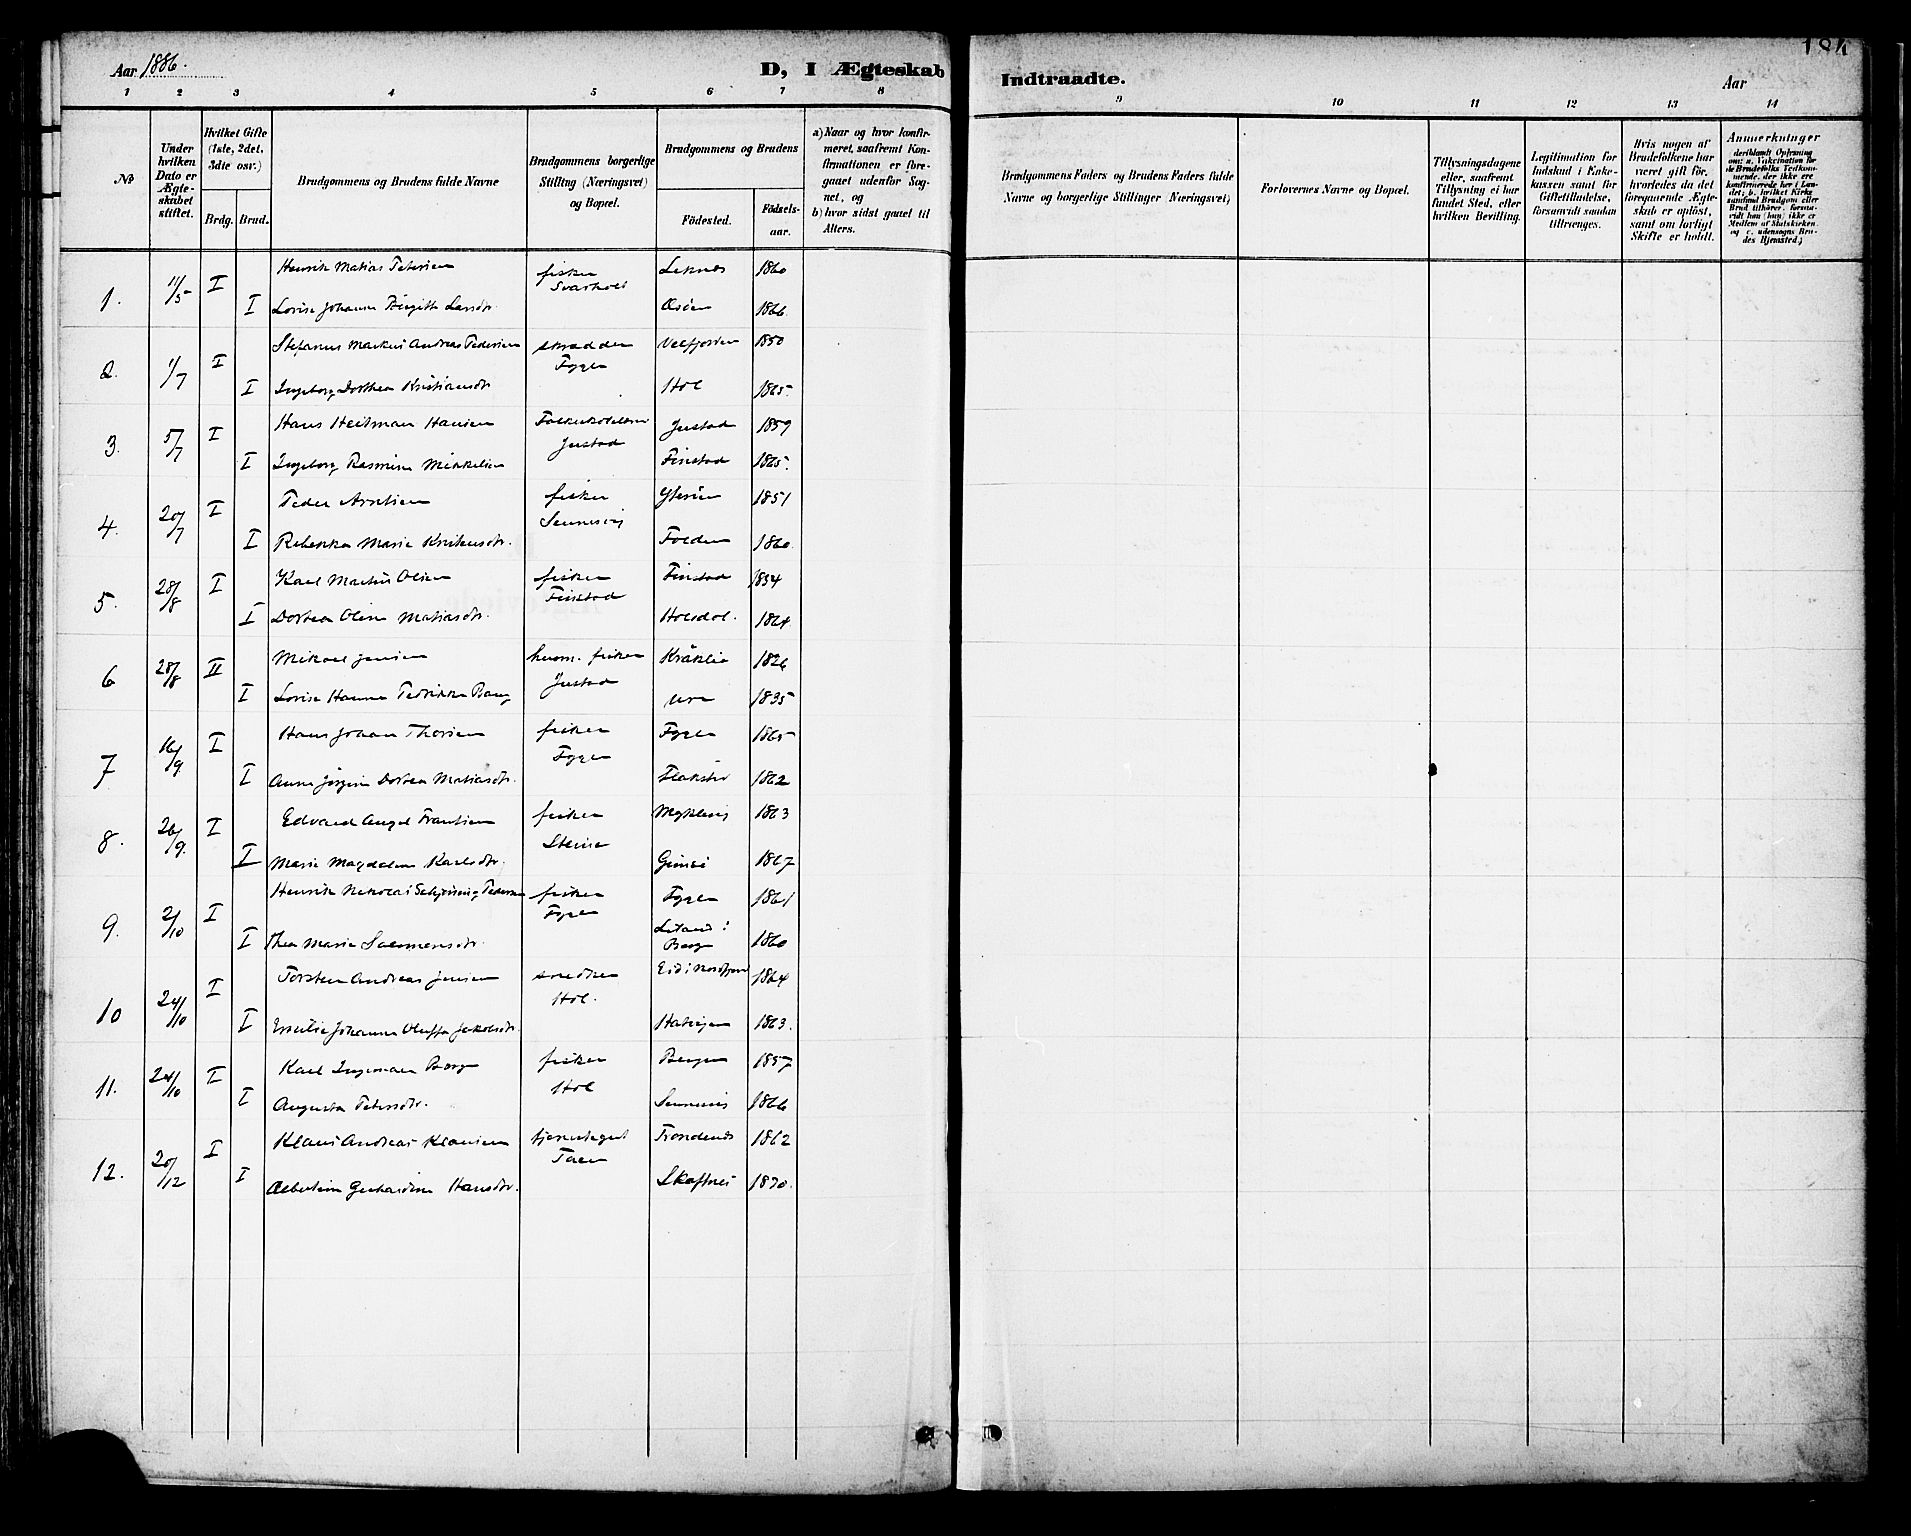 Aar 1886. D, I Ægteskab Indtraadte. Aar 184
1 2 3 4 5 6 7 8 9 10 11 12 13 14
No
Under hvilken Dato er Ægteskabet stiftet.
Hvilket Gifte (1ste, 2det, 3die osv.)
Brdg. Brud.
Brudgommens og Brudens fulde Navne
Brudgommens borgerlige Stilling (Næringsvei) og Bopæl.
Brudgommens og Brudens
Födested. Födsels-aar.
a) Naar og hvor konfirmeret, saafremt Konfirmationen er foregaaet udenfor Sognet, og
b) hvor sidst gaaet til Alters.
Brudgommens Faders og Brudens Faders fulde Navne og borgerlige Stillinger Næringsvei)
Forlovernes Navne og Bopæl.
Tillysningsdagene eller, saafremt Tillysning ei har fundet Sted, efter hvilken Bevilling.
Legitimation for Indskud i Enkekassen samt för Giftetilladelse, forsaavidt saadan tiltrænges.
Hvis nogen af Brudefolkene har været gift för, hvorledes da det foregaaende Ægteskab er oplöst, samt om lovligt Skifte er holdt.
Anmerkninger
1. 11/5 I Henrik Matias Petersen fisker Leknes 1860
Svarholt
I Lovise Johanna Birgitte Larsdtr. 1866
2. 1/7 I Stefanus Markus Andreas Pedersen skrædder Velfjorden 1850
Fygle
I Ingeborg Dorthea Kristiansdtr Hol 1865.
3. 5/7 I Hans Heitman Hansen Justad 1859
Justad
I Ingeborg Rasmine Mikkelsen Finstad 1865.
4. 20/7 I Peder Arntsen fisker 1851
Sennesvig
I Rebekka Marie Kristensdtr. Folden 1860.
5. 28/8 I Karl Martin Olsen fisker Finstad 1854
Finstad
I Dortea Oline Matiasdtr. Holsdal. 1864.
6 28/8 II Mikael Jensen husm. fisker 1826
Justad
I Lovise Hanna Pedrikke Bang Ure 1835
7 16/9 I Hans Johan Thorsen fisker Fygle 1865
Fygle
I Anne Jörgine Dortea Matiasdtr. Flakstad 1862
8. 26/9. I Edvard Angel Frantsen fisker 1863
Steine
I Marie Magdalena Karlsdtr. Gimsö 1867
9. 2/10 I Henrik Nikolai Schjelning Pedersen fisker Fygle 1861
Fygle
I Thea Marie Salomonsdtr. i Borge 1860
10 24/10 I Torsten Andreas Jensen snedker Eid i Nordfjord 1864
Hol.
I Emilie Johanna Oluffa Jakobsdtr. 1863.
11. 24/10 I Karl Ingeman Borge fisker Bergen 1857
Hol
I Augusta Petersdtr. Sennesvig 1866
12. 20/12 I Klaus Andreas Klausen tjenestegut Trondenes 1862
I Albertine Gerhardine Hansdtr. Skaftnes 1870.